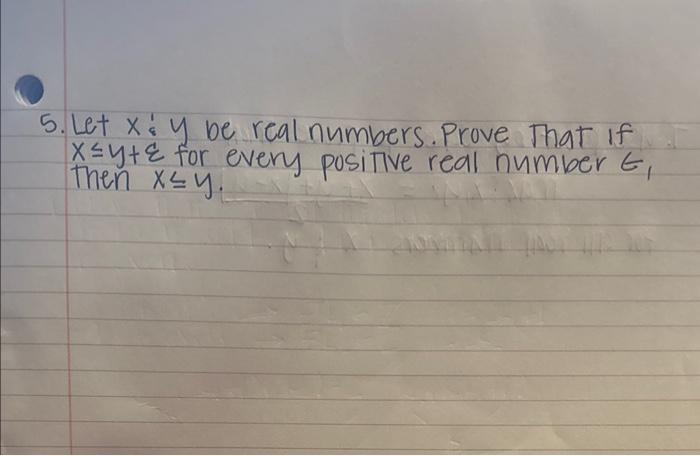 5. Let x & y be real numbers. Prove That if
x≤y+ε for every positive real number ε,
then x≤y.